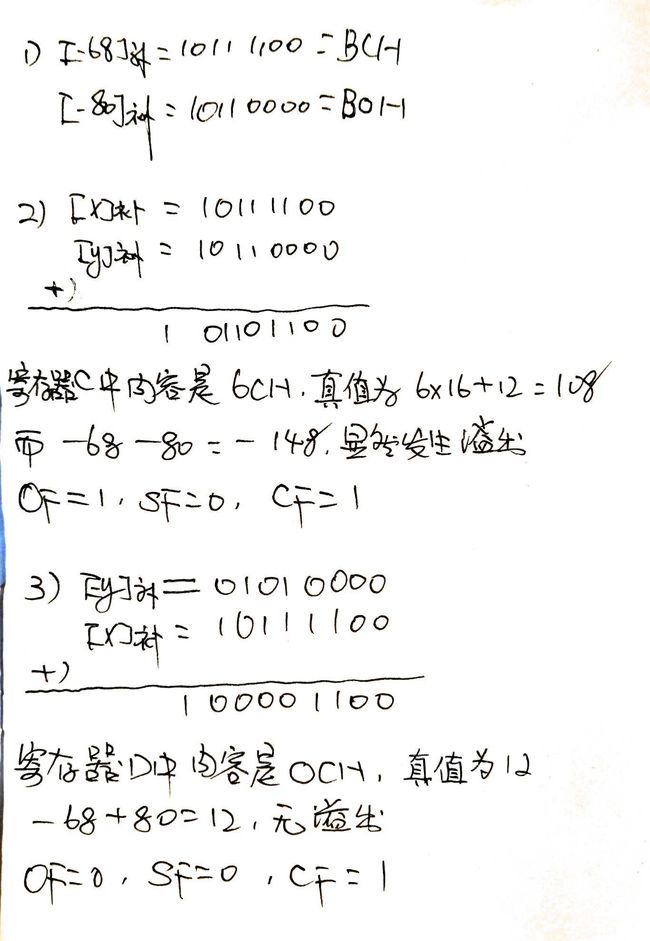 1) [-68]补 = 1011 1100 = BCH
[-80]补 = 10110000 = B0H
2) [x]补 = 10111100
[y]补 = 10110000
+)
1 01101100
寄存器C中内容是 6CH, 真值为 6x16+12=108
而 -68-80 = -148, 显然发生溢出
OF=1, SF=0, CF=1
3) [-y]补 = 01010000
[x]补 = 10111100
+)
1 00001100
寄存器D中内容是 0CH, 真值为12
-68+80=12, 无溢出
OF=0, SF=0, CF=1